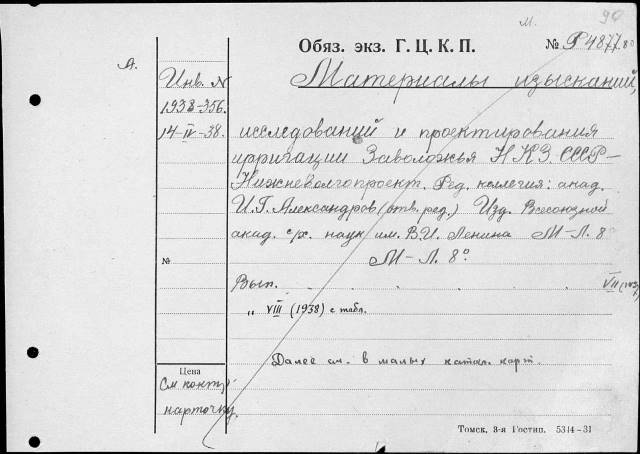 м. 90
А.
Обяз. экз. Г. Ц. К. П. № Р4877.80
Инв. N
1938-356.
14-IV-38.
Материалы изысканий,
исследований и проектирования
ирригации Заволожья НКЗ СССР-
Нижневолгопроект. Ред. коллегия: акад.
И.Г. Александров (отв. ред.) Изд. Всесоюзной
акад. с/х. наук им. В.И. Ленина М-Л. 8°
№ М-Л. 8°
Вып. . . . . . . VII (1937)
„ VIII (1938) с табл.
Далее см. в малых катал. карт.
Цена
См контр.
карточку.
Томск, 3-я Гостип. 5314-31